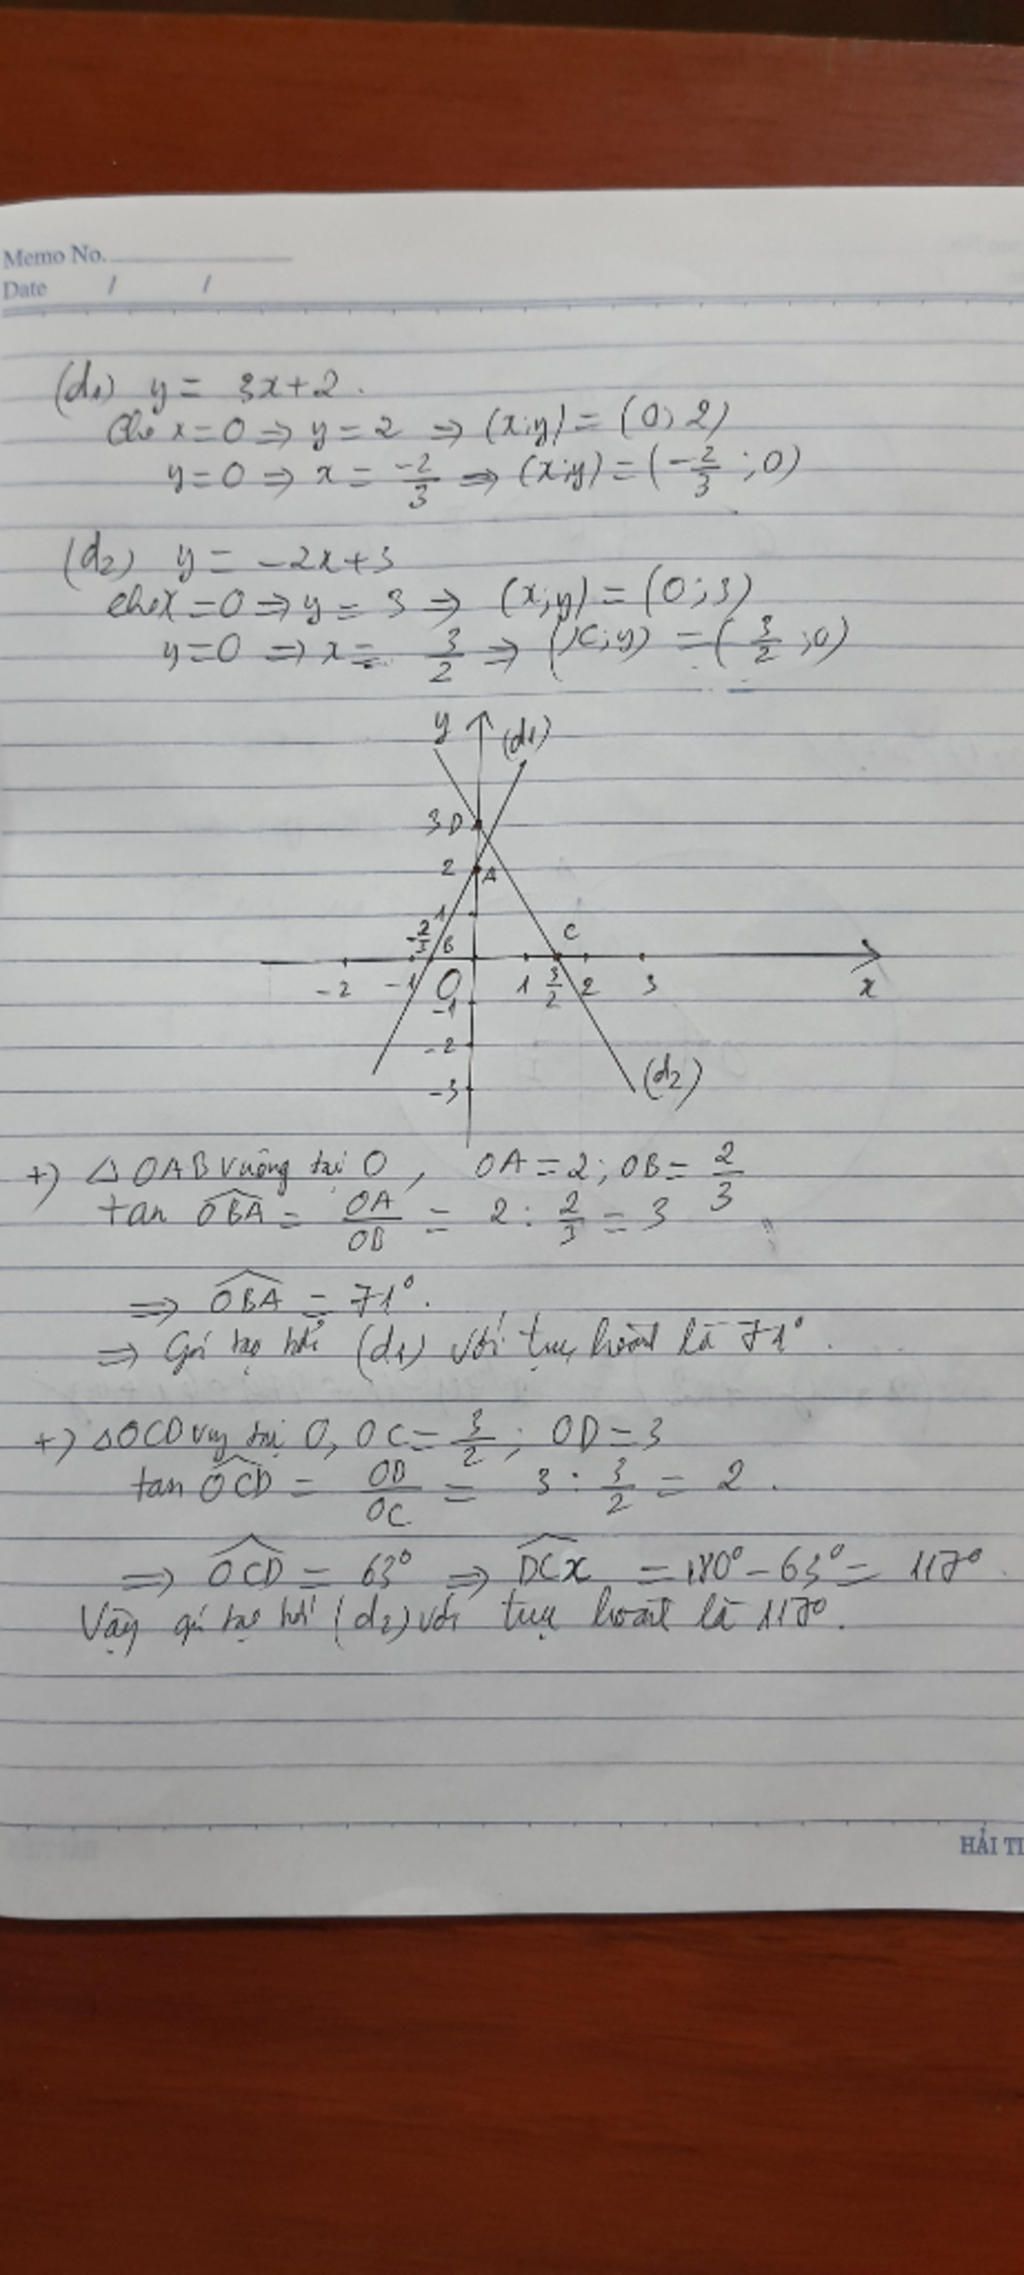 Memo No.
Date / /
(d1) y = 3x+2.
Cho x=0 ⇒ y=2 ⇒ (x;y) = (0; 2)
y=0 ⇒ x = -2/3 ⇒ (x;y) = (-2/3 ; 0)
(d2) y = -2x+3
cho x=0 ⇒ y = 3 ⇒ (x;y) = (0;3)
y=0 ⇒ x = 3/2 ⇒ (x;y) = (3/2 ;0)
y (d1)
3 D
2 A
1
-2/3 B C
-2 -1 O 1 3/2 2 3 x
-1
-2
-3 (d2)
+) △OAB vuông tại O, OA = 2; OB = 2/3
tan OBA = OA/OB = 2 : 2/3 = 3
⇒ OBA = 71°.
⇒ Góc tạo bởi (d1) với trục hoành là 71°.
+) △OCD vug tại O, OC = 3/2 ; OD = 3
tan OCD = OD/OC = 3 : 3/2 = 2.
⇒ OCD = 63° ⇒ DCx = 180° - 63° = 117°.
Vậy góc tạo bởi (d2) với trục hoành là 117°.
HẢI TI